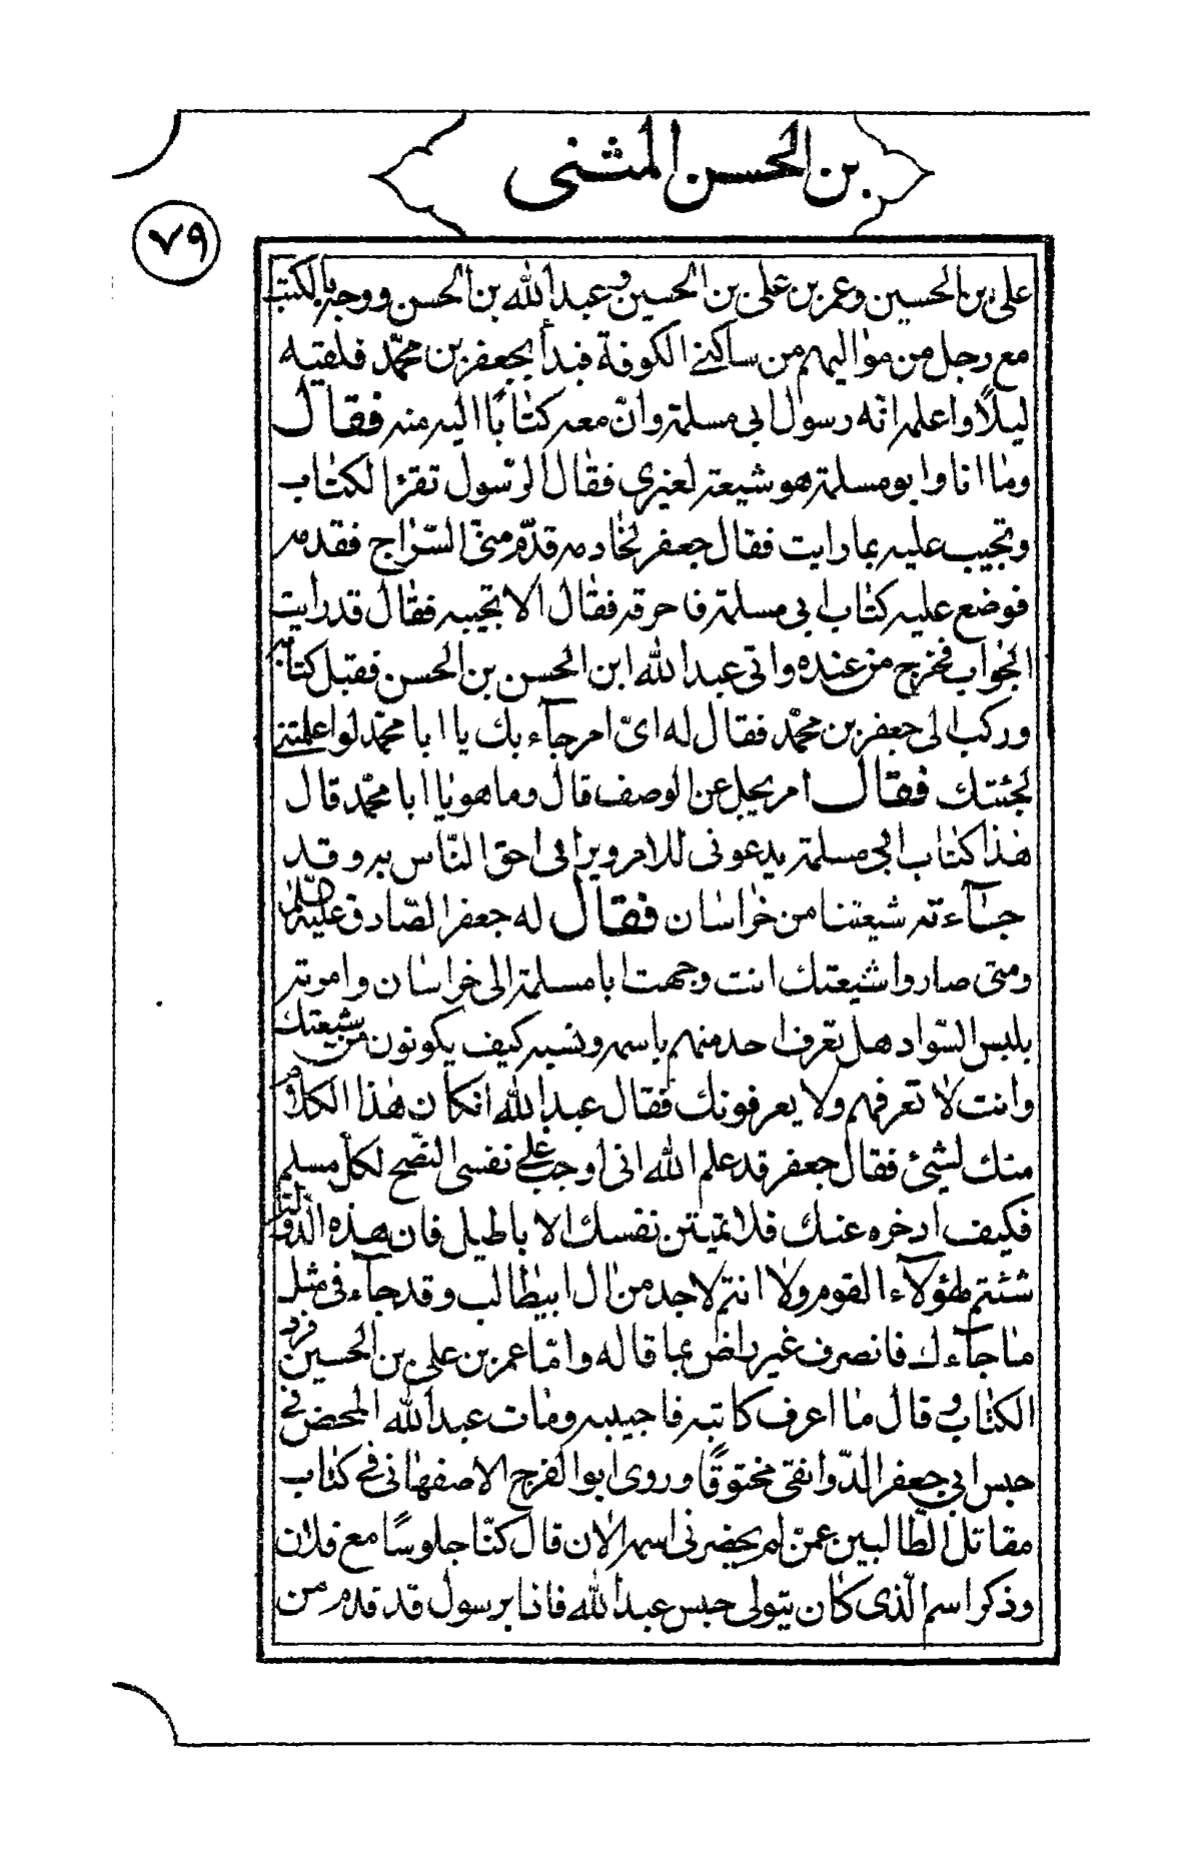 بن الحسن المثنى
٧٩
على بن الحسين وعمر بن على بن الحسين وعبد الله بن الحسن ووجه بالكتب
مع رجل من مواليهم من ساكنى الكوفة فبدأ بجعفر بن محمّد فلقيه
ليلًا واعلمه انّه رسول ابى مسلمة وانّ معه كتابًا اليه منه فقال
وما انا وابو مسلمة هو شيعة لغيرى فقال الرّسول تقرأ الكتاب
وتجيب عليه بما رايت فقال جعفر لخادمه قدّم منّى السّراج فقدمه
فوضع عليه كتاب ابى مسلمة فاحرقه فقال الا تجيبه فقال قد رايت
الجواب فخرج من عنده واتى عبد الله ابن الحسن بن الحسن فقبل كتابه
وركب الى جعفر بن محمّد فقال له اىّ امر جآء بك يا ابا محمّد لو اعلمتنى
لجئتك فقال امر يجل عن الوصف قال وما هو يا ابا محمّد قال
هذا كتاب ابى مسلمة يدعونى للامر ويرانى احق النّاس به وقد
جآءته شيعتنا من خراسان فقال له جعفر الصّادق عليه السّلم
ومتى صاروا شيعتك انت وجهت ابا مسلمة الى خراسان وامرته
بلبس السّواد هل تعرف احد منهم باسمه ونسبه كيف يكونون من شيعتك
وانت لا تعرفهم ولا يعرفونك فقال عبد الله انكان هذا الكلام
منك لشىء فقال جعفر قد علم الله انى اوجب على نفسى النّصح لكلّ مسلم
فكيف ادخره عنك فلا تمنينّ نفسك الاباطيل فان هذه الدّولة
ستتم لهؤلآء القوم ولا انتم لاحد من ال ابيطالب وقد جآءنى مثل
ما جآءك فانصرف غير راض بما قاله وامّا عمر بن على بن الحسين فردّ
الكتاب وقال ما اعرف كاتبه فاجيبه ومات عبد الله المحض فى
حبس ابى جعفر الدّوانقى مختوقًا وروى ابو الفرج الاصفهانى فى كتاب
مقاتل الطّالبين عمّن لم يحضرنى اسمه الان قال كنّا جلوسًا مع فلان
وذكر اسم الّذى كان يتولى حبس عبد الله فاذا برسول قد قدم من